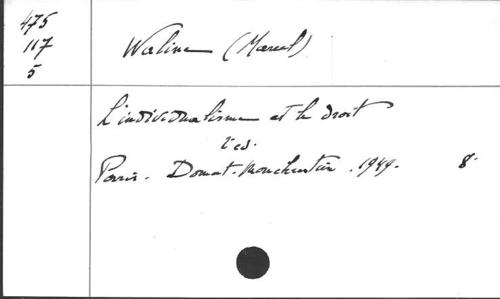 475
117
5
Waline (Marcel)
L'individualisme et le droit
2 ed.
Paris. Domat-Monchrestien. 1949. 8°